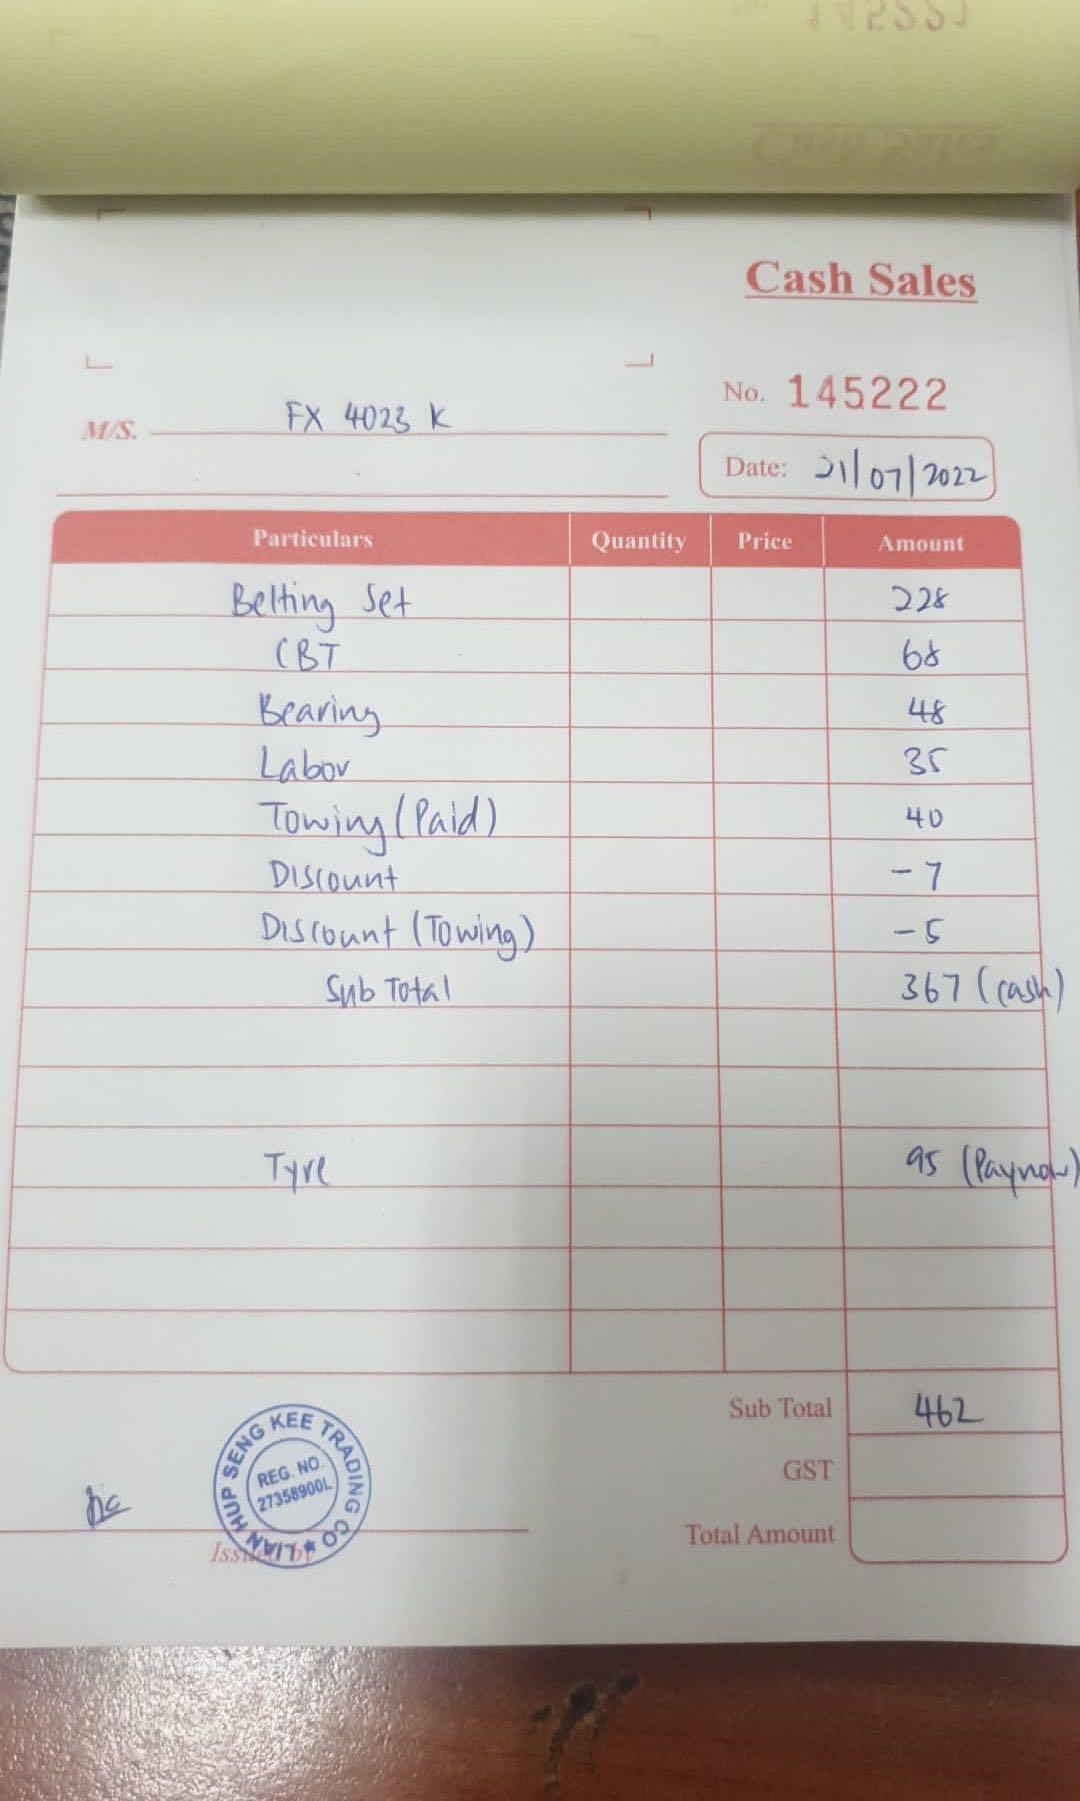 145221
Cash Sales
Cash Sales
No. 145222
M/S. FX 4023 K
Date: 21/07/2022
Particulars Quantity Price Amount
Belting Set 228
CBT 68
Bearing 48
Labor 35
Towing (Paid) 40
Discount - 7
Discount (Towing) - 5
Sub Total 367 (cash)
Tyre 95 (Paynow)
Sub Total 462
GST
Total Amount
LIAN HUP SENG KEE TRADING CO
REG. NO.
27358900L
Issued by